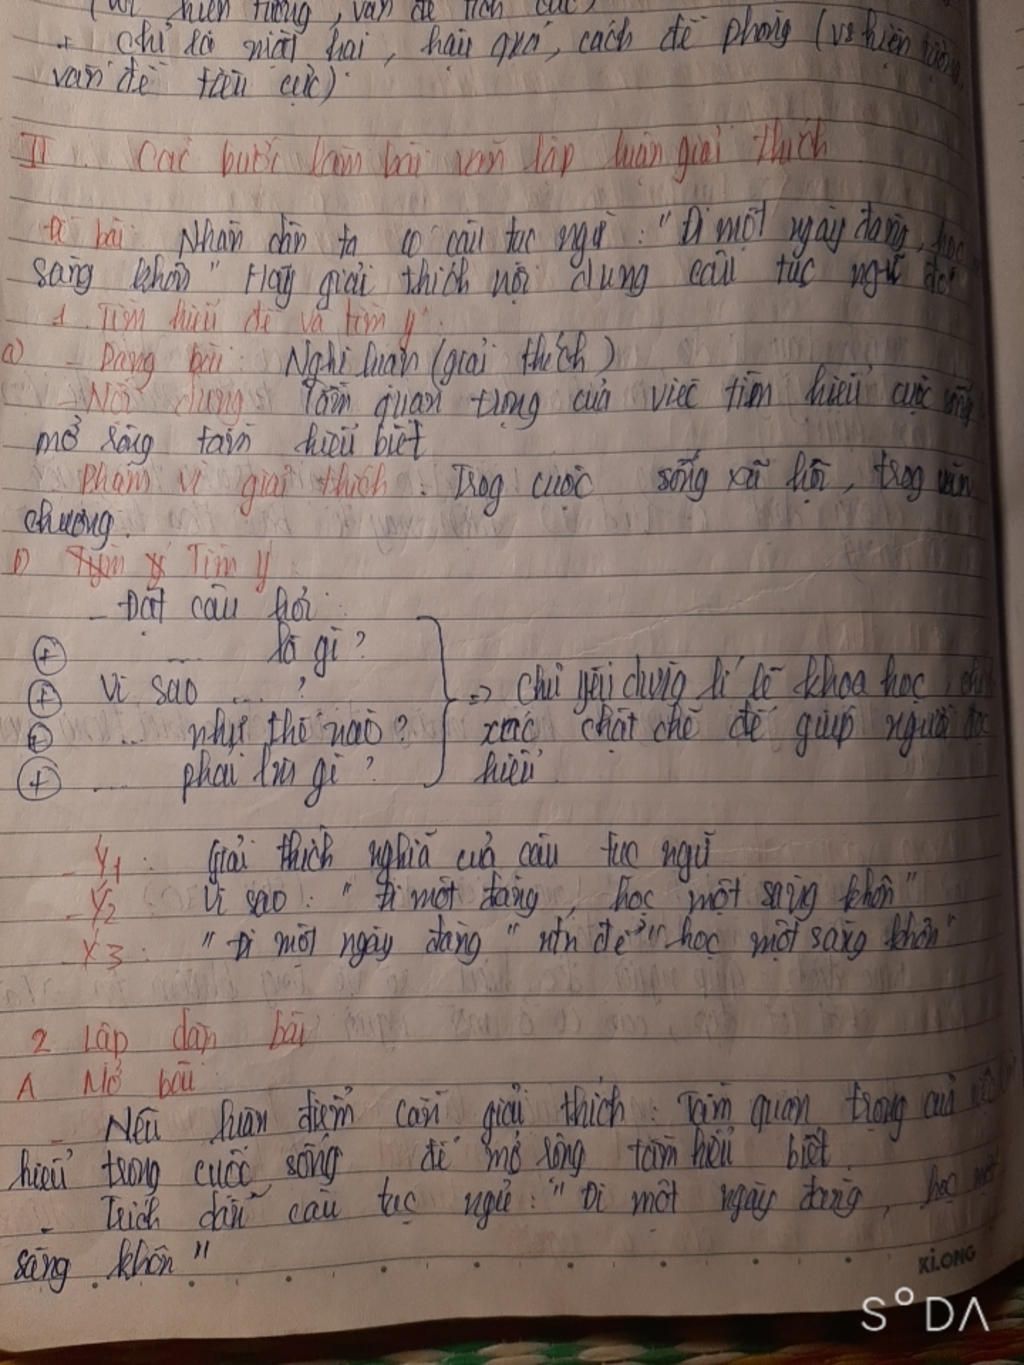 (với hiện tượng, vấn đề tích cực)
+ chỉ là mặt hại, hậu quả, cách đề phòng (vs hiện tượng,
vấn đề tiêu cực)
II. Các bước làm bài văn lập luận giải thích
Đề bài: Nhân dân ta có câu tục ngữ: "Đi một ngày đàng, học
sàng khôn" Hãy giải thích nội dung câu tục ngữ đó
1. Tìm hiểu đề và tìm ý
a) - Dạng bài: Nghị luận (giải thích)
- Nội dung: Tầm quan trọng của việc tìm hiểu cuộc sống
mở rộng tầm hiểu biết
Phạm vi giải thích: Trog cuộc sống xã hội, trog văn
chương.
b) Tìm ý
- Đặt câu hỏi:
⊕ ... là gì?
⊕ Vì sao ....?
⊕ ... như thế nào?
⊕ .... phải làm gì?
=> chủ yếu dùng lí lẽ khoa học,
xác chặt chẽ để giúp người đọc
hiểu
- Y1: Giải thích nghĩa của câu tục ngữ
- Y2: Vì sao: "Đi một đàng, học một sàng khôn"
- Y3: "Đi một ngày đàng" ntn để "học một sàng khôn"
2 Lập dàn bài
A Mở bài
- Nêu luận điểm cần giải thích: Tầm quan trọng của
hiểu trong cuộc sống để mở rộng tầm hiểu biết.
- Trích dẫn câu tục ngữ: "Đi một ngày đàng, học một
sàng khôn"
KLONG
SODA